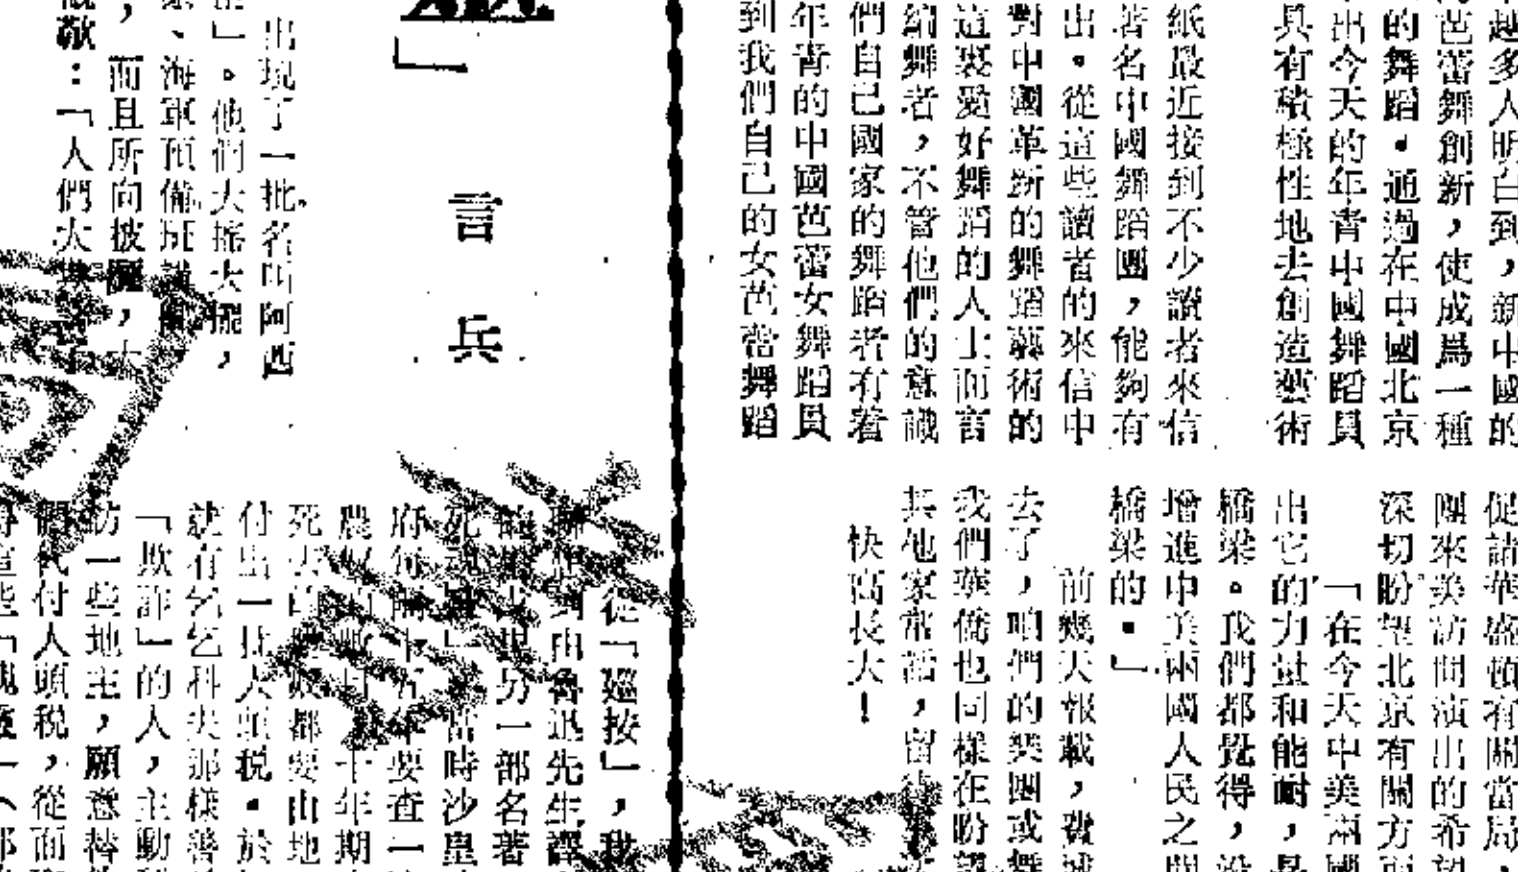 越多人明白到，新中國的
芭蕾舞創新，使成爲一種
的舞蹈。通過在中國北京
出今天的年青中國舞蹈員
具有積極性地去創造藝術
紙最近接到不少讀者來信
著名中國舞蹈團，能夠有
出。從這些讀者的來信中
對中國革新的舞蹈藝術的
這裏愛好舞蹈的人士而言
編舞者，不管他們的意識
們自己國家的舞蹈者有着
年青的中國芭蕾女舞蹈員
到我們自己的女芭蕾舞蹈
促請華盛頓有關當局，
團來美訪問演出的希望
深切盼望北京有關方面
「在今天中美兩國
出它的力量和能耐，是
橋梁。我們都覺得，
增進中美兩國人民之間
橋梁的。」
前幾天報載，費城
去了，咱們的樂團或舞
我們華僑也同樣在盼望
其他家常話，留待
快高長大！
」
言兵
出現了一批名叫阿西
」。他們大搖大擺，
、海軍預備班
，而且所向披靡，
敬：「人們大
從「巡按」，我
由魯迅先生譯
出現另一部名著
」當時沙皇
府每 年要查一
農奴 十年期
死去 都要由地
付出一批人頭稅。於
就有乞乞科夫那樣善
「欺詐」的人，主動
訪一些地主，願意替
們代付人頭稅，從而
這些「